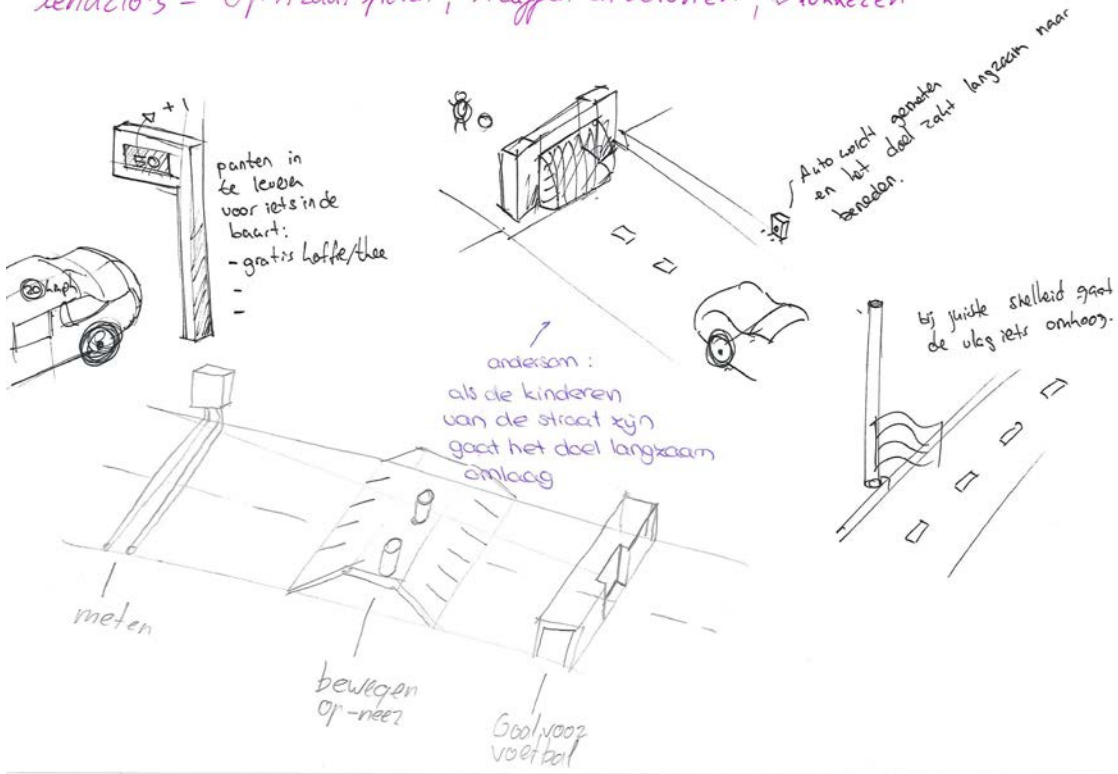 op straat spelen,
+1
50
punten in
te leveren
voor iets in de
buurt:
- gratis koffie/thee
-
-
20 kmph
Auto wordt gemeten
en het doel zakt langzaam naar
beneden.
bij juiste snelheid gaat
de vlag iets omhoog.
andersom:
als de kinderen
van de straat zijn
gaat het doel langzaam
omlaag
meten
bewegen
op-neer
Goal voor
voetbal